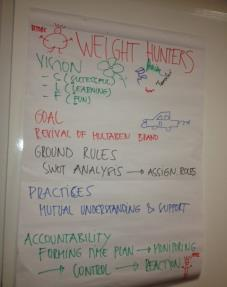 BEFORE
WEIGHT HUNTERS
VISION
- S (UCCESSFUL)
- L (EARNING)
- F (UN)
GOAL
REVIVAL OF MULTABEN BRAND
GROUND RULES
SWOT ANALYSIS → ASSIGN ROLES
PRACTICES
MUTUAL UNDERSTANDING & SUPPORT
ACCOUNTABILITY
FORMING TIME PLAN → MONITORING
→ CONTROL → REACTION